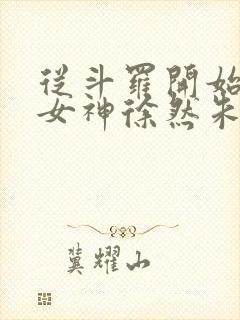 從斗羅開始
女神徐然朱
冀耀山